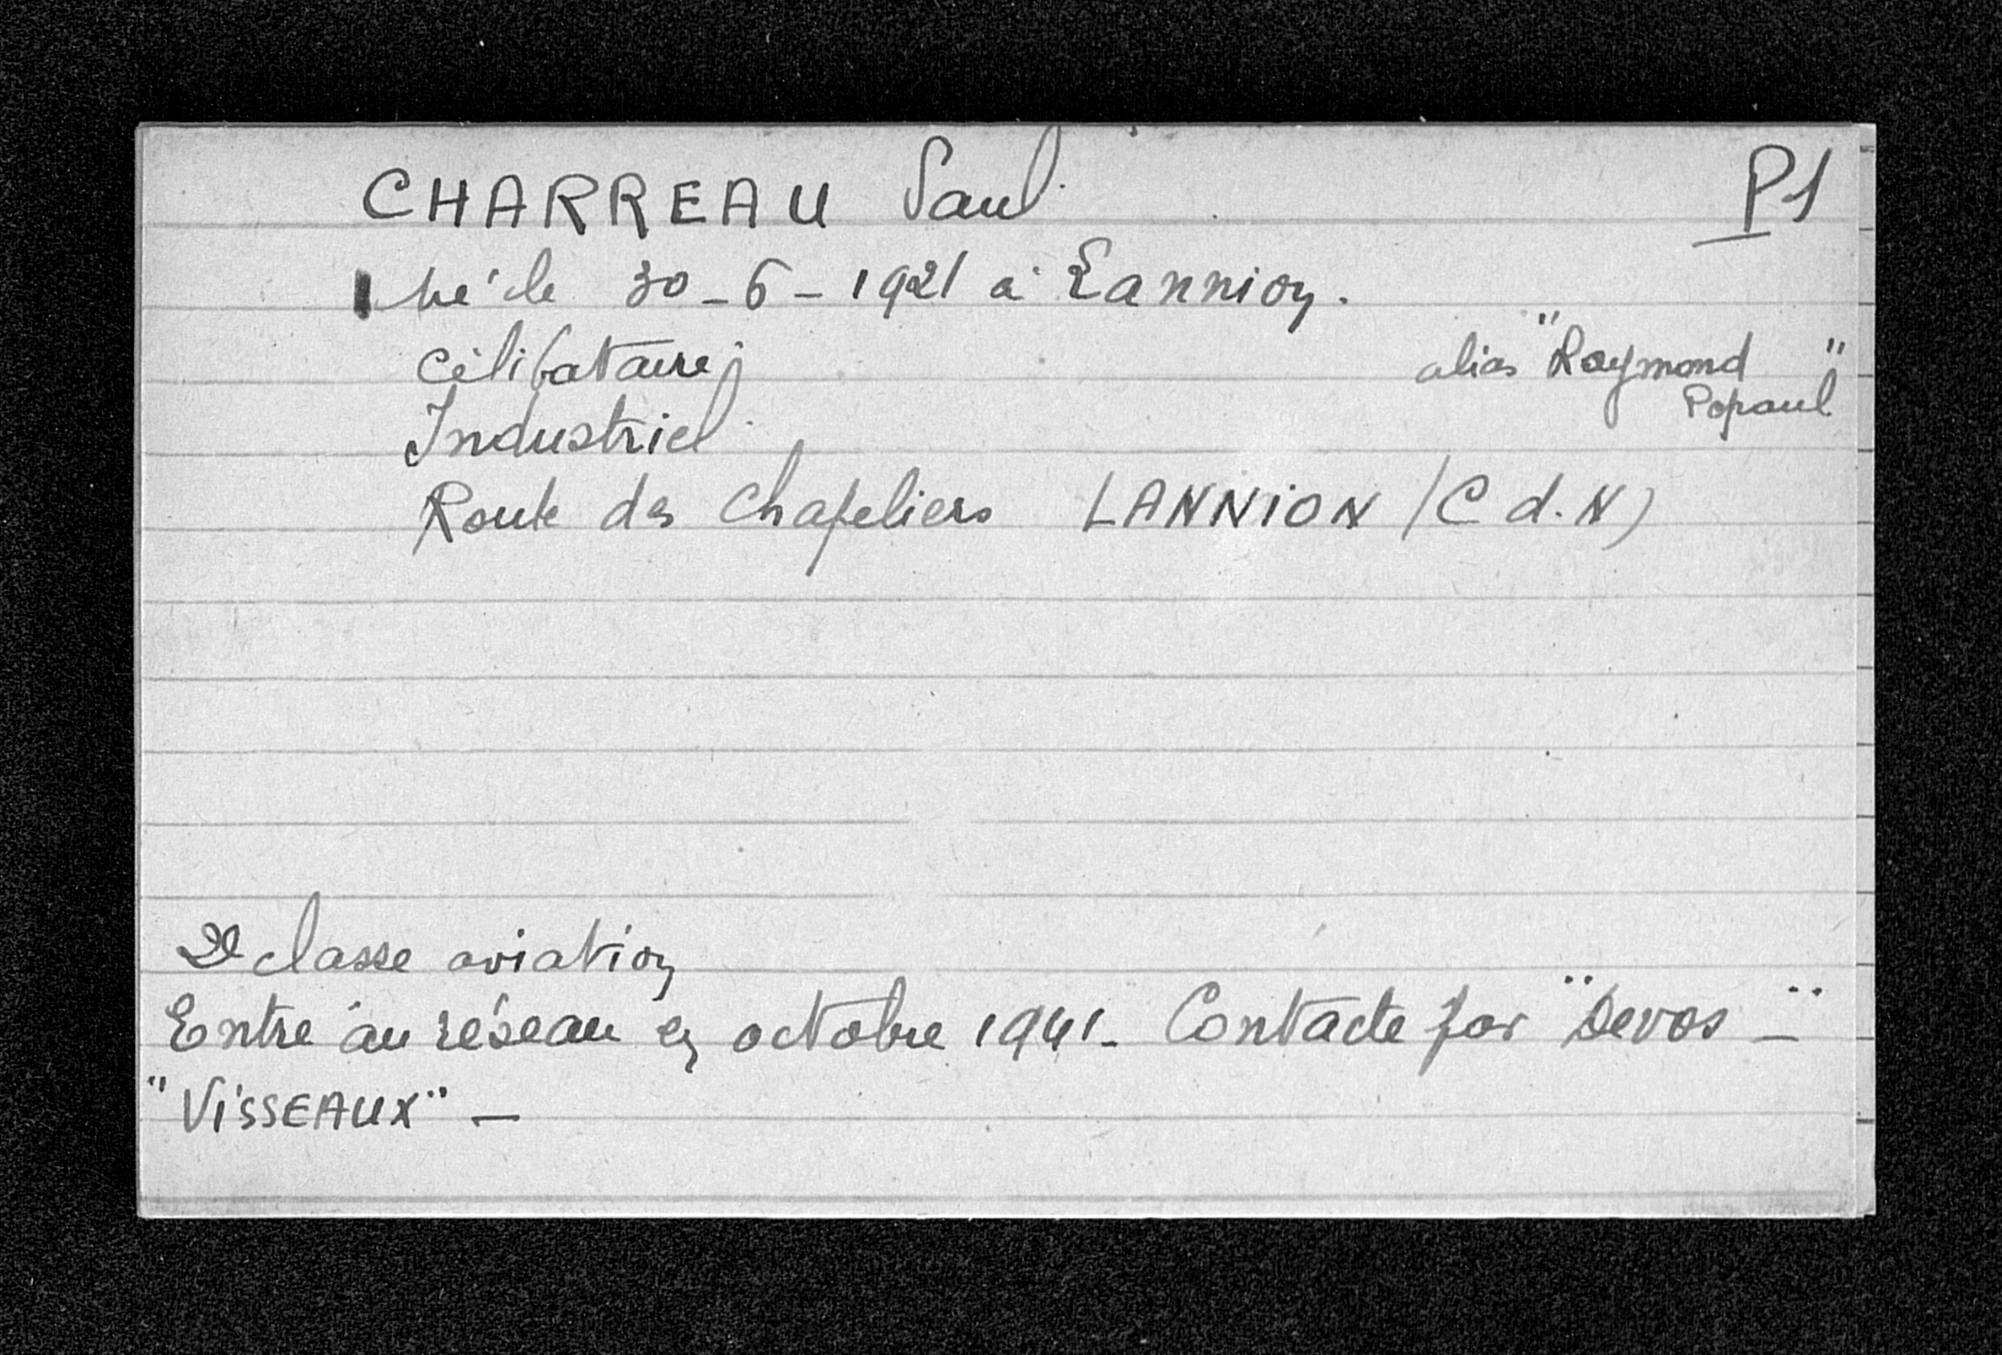 CHARREAU Paul P1
né le 30-6-1921 à Lannion.
célibataire
alias "Raymond"
Popaul
Industriel
Route des Chapeliers LANNION (C d.N)
2e classe aviation
Entre au réseau en octobre 1941- Contacté par "Devos -"
"ViSSEAUX" -